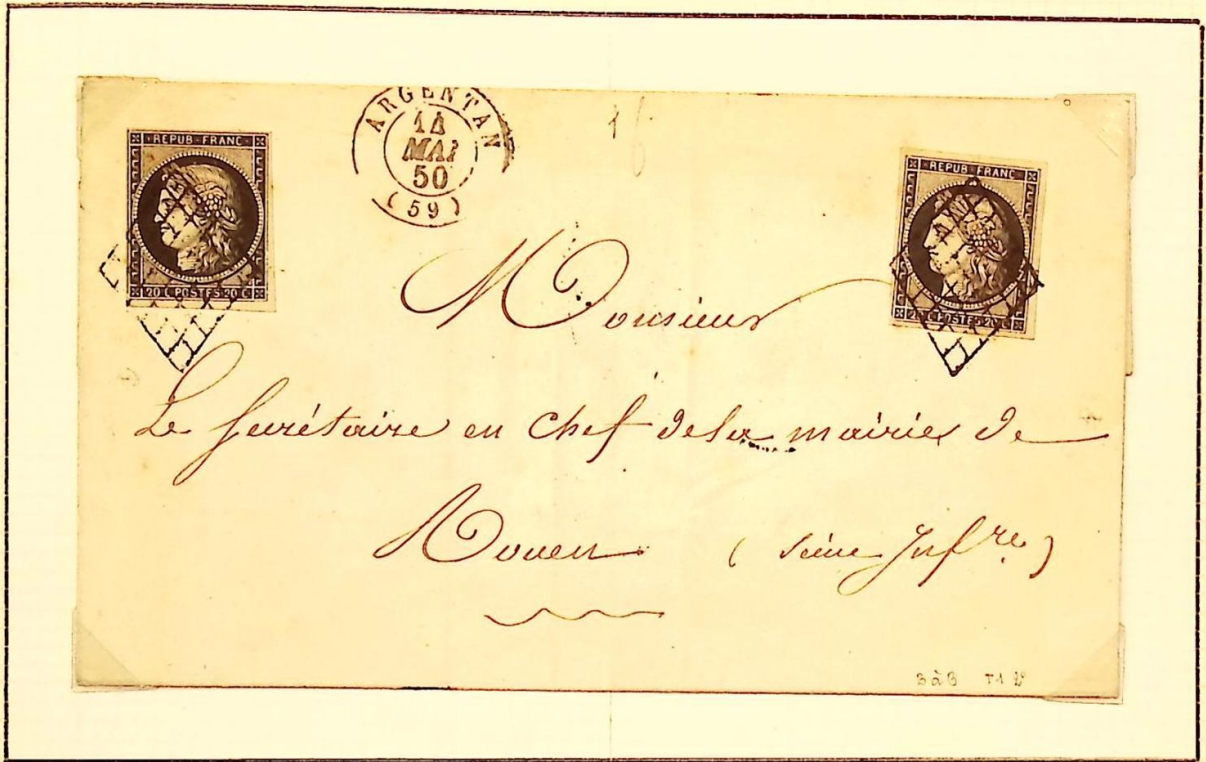 REPUB·FRANC
20 C POSTES 20 C
ARGENTAN
14
MAI
50
(59)
REPUB·FRANC
20 C POSTES 20 C
Monsieur
Le Secrétaire en chef de la mairie de
Rouen ( Seine Infre )